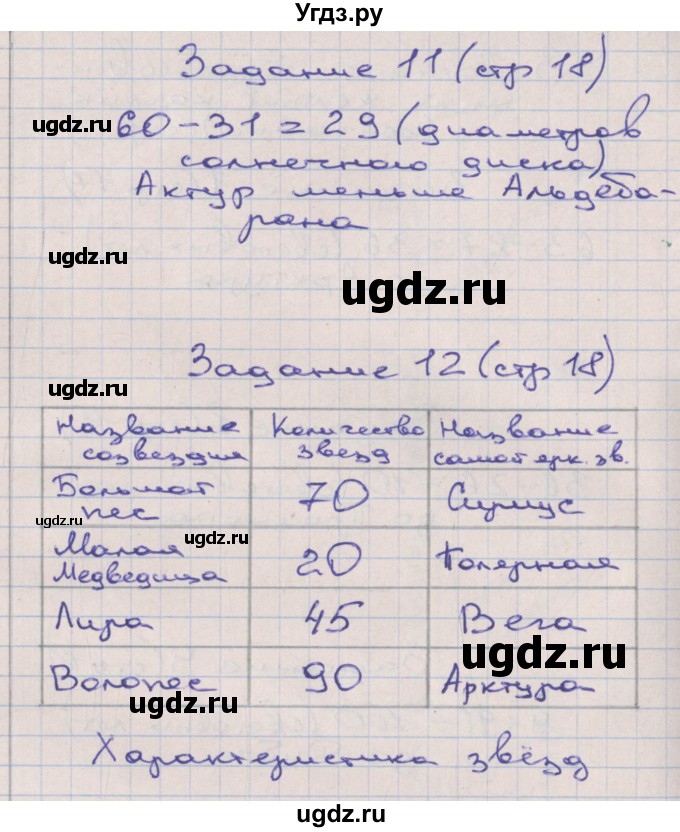 Угдз.ру
Задание 11 (стр 18)
ugdz.ru
60 - 31 = 29 (диаметров
солнечного диска)
Актур меньше Альдеба-
рана
ugdz.ru
ugdz.ru
Задание 12 (стр 18)
ugdz.ru
Название созвездия | Количество звезд | Название самой ярк. зв.
Большой пес | 70 | Сириус
ugdz.ru
ugdz.ru
Малая Медведица | 20 | Полярная
Лира | 45 | Вега
ugdz.ru
Волопес | 90 | Арктура
ugdz.ru
Характеристика звёзд
ugdz.ru
ugdz.ru